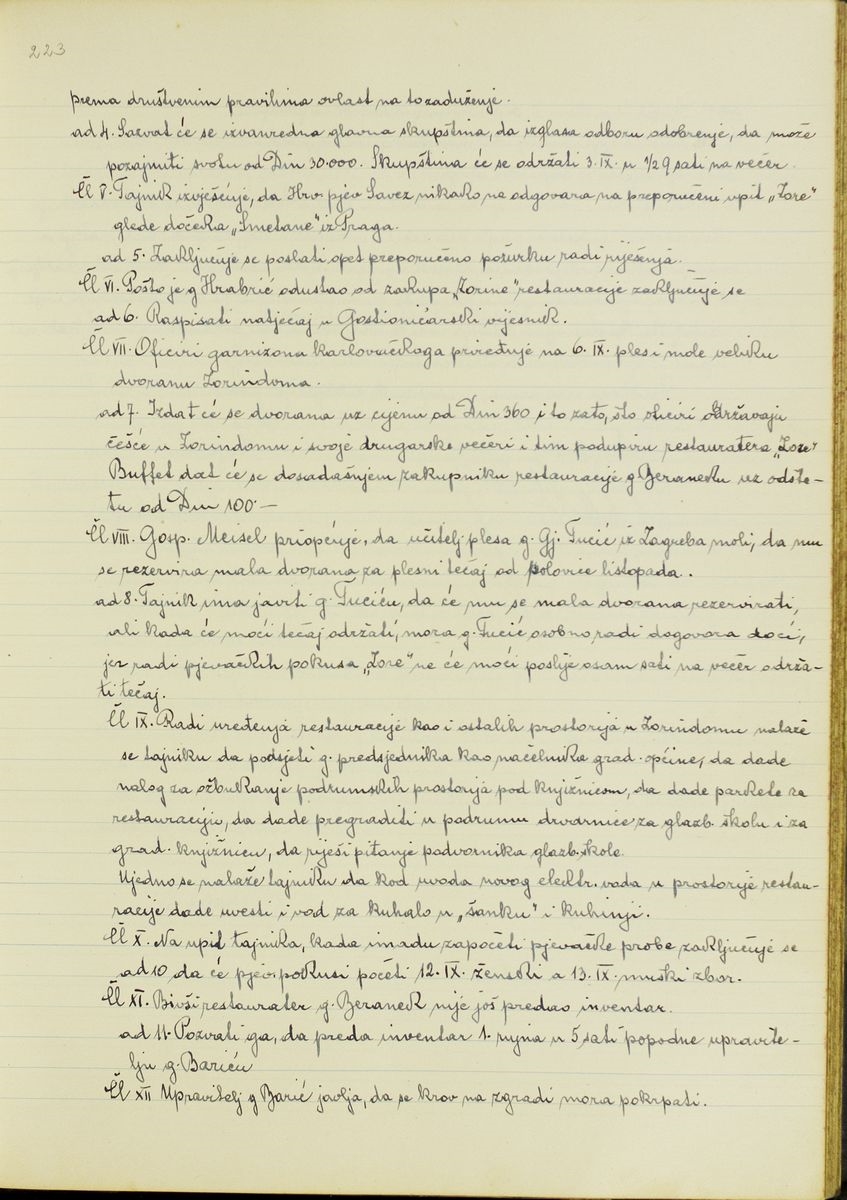 223
prema društvenim pravilima ovlast na to zaduženje.
ad 4. Sazvat će se izvanredna glavna skupština, da izglasa odboru odobrenje, da može
pozajmiti svotu od Din 30.000. Skupština će se održati 3. IX. u 1/2 9 sati na večer.
Čl V. Tajnik izvješćuje, da Hrv. pjev. Savez nikako na odgovara na preporučeni upit „Zore"
glede dočeka „Smetane" iz Praga.
ad 5. Zaključuje se poslati opet preporučeno požurku radi riješenja.
Čl VI. Pošto je g Hrabrić odustao od zakupa „Zorine" restauracije zaključuje se
ad 6. Raspisati natječaj u Gostioničarski vijesnik.
Čl VII. Oficiri garnizona karlovačkoga priređuje na 6. IX. ples i mole veliku
dvoranu Zorindoma.
ad 7. Izdat će se dvorana uz cijenu od Din 360 i to zato, što oficiri održavaju
češće u Zorindomu i svoje drugarske večeri i tim podupiru restauratera „Zore"
Buffet dat će se dosadašnjem zakupniku restauracije g Beraneku uz odšte-
tu od Din 100.—
Čl VIII. Gosp. Meisel priopćuje, da učitelj plesa g. Gj. Fucić iz Zagreba moli, da mu
se rezervira mala dvorana za plesni tečaj od polovice listopada.
ad 8. Tajnik ima javiti g. Fuciću, da će mu se mala dvorana rezervirati,
ali kada će moći tečaj održati, mora g. Fucić osobno radi dogovora doći,
jer radi pjevačkih pokusa „Zore" ne će moći poslije osam sati na večer održa-
ti tečaj.
Čl IX. Radi uređenja restauracije kao i ostalih prostorija u Zorindomu nalaže
se tajniku da podsjeti g. predsjednika kao načelnika grad. općine, da dade
nalog za ožbukanje podrumskih prostorija pod knjižnicom, da dade parkete za
restauraciju, da dade pregraditi u podrumu drvarnice za glazb. školu i za
grad. knjižnicu, da riješi pitanje podvornika glazb. škole.
Ujedno se nalaže tajniku da kod uvoda novog elektr. voda u prostorije restau-
racije dade uvesti i vod za kuhalo u „šanku" i kuhinji.
Čl X. Na upit tajnika, kada imadu započeti pjevačke probe zaključuje se
ad 10 da će pjev. pokusi početi 12. IX. ženski a 13. IX. muški zbor.
Čl XI. Bivši restaurater g. Beranek nije još predao inventar.
ad 11. Pozvati ga, da preda inventar 1. rujna u 5 sati popodne upravite-
lju g. Bariću
Čl XII Upravitelj g Barić javlja, da se krov na zgradi mora pokrpati.